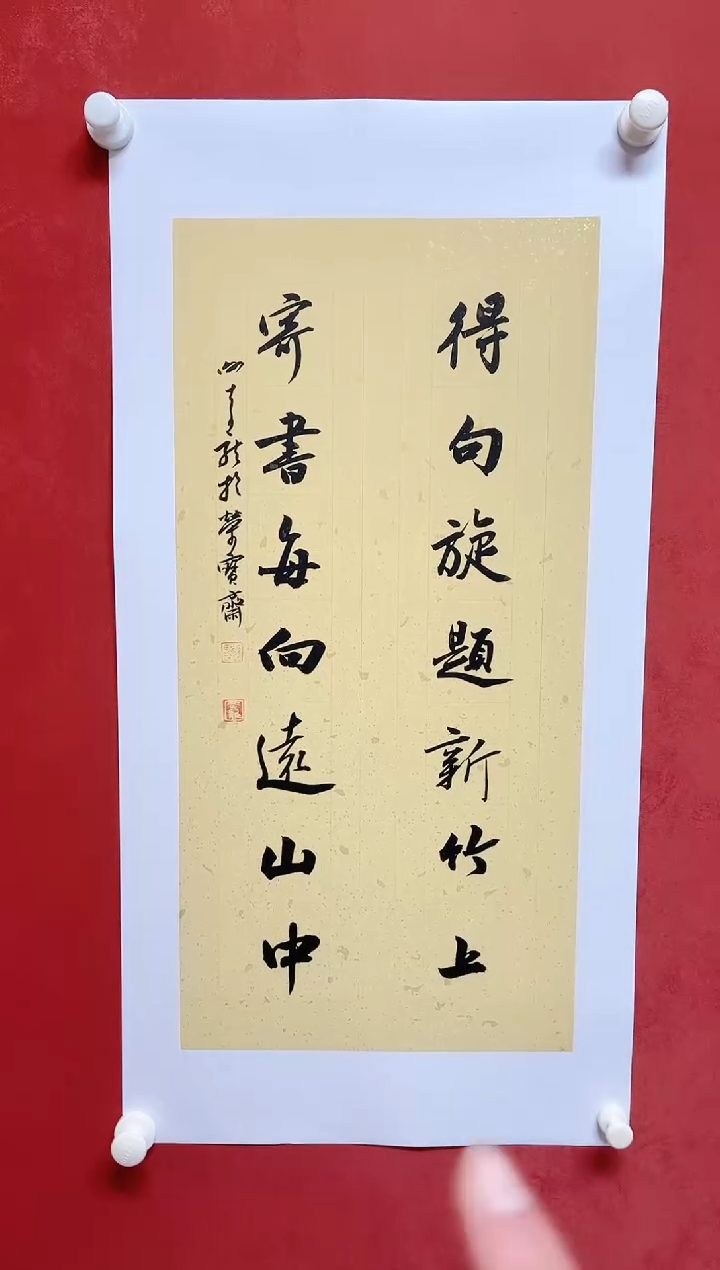 得句旋題新竹上
寄書每向遠山中
於榮寶齋